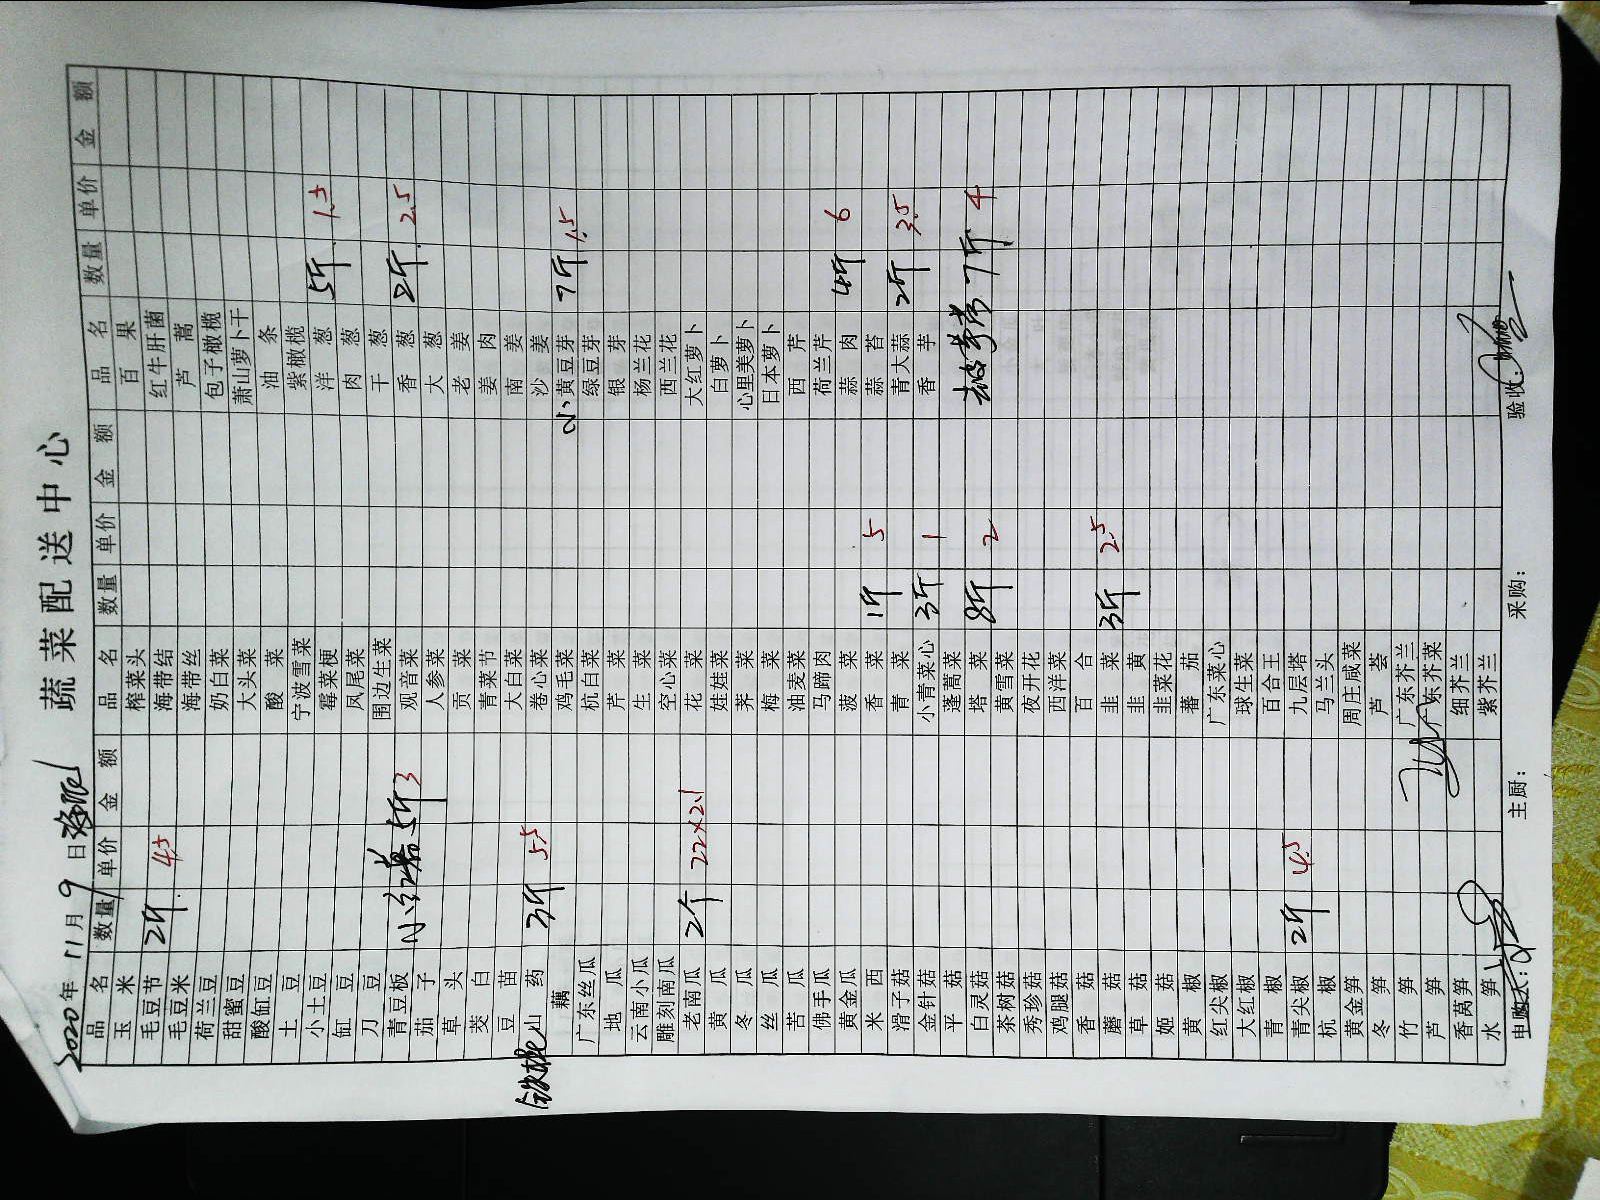 蔬菜配送中心
2020年11月9日
品名 数量 单价 金额 品名 数量 单价 金额 品名 数量 单价 金额
玉米 榨菜头 百果
毛豆节 2斤 4.5 海带结 红牛肝菌
毛豆米 海带丝 芦蒿
荷兰豆 奶白菜 包子橄榄
甜蜜豆 大头菜 萧山萝卜干
酸缸豆 酸菜 油条
土豆 宁波雪菜 紫橄榄
小土豆 霉菜梗 洋葱 5斤 1.5
缸豆 凤尾菜 肉葱
刀豆 围边生菜 干葱
青豆板 小红薯 5斤 3 观音菜 香葱 2斤 2.5
茄子 人参菜 大葱
草头 贡菜 老姜
茭白 青菜节 姜肉
豆苗 大白菜 南姜
铁棍山药 3斤 5.5 卷心菜 沙姜
藕 鸡毛菜 小黄豆芽 7斤 1.5
广东丝瓜 杭白菜 绿豆芽
地瓜 芹菜 银芽
云南小瓜 生菜 杨兰花
雕刻南瓜 空心菜 西兰花
老南瓜 2个 22×2.1 花菜 大红萝卜
黄瓜 娃娃菜 白萝卜
冬瓜 荠菜 心里美萝卜
丝瓜 梅菜 日本萝卜
苦瓜 油麦菜 西芹
佛手瓜 马蹄肉 荷兰芹
黄金瓜 菠菜 蒜肉 4斤 6
米西 香菜 1斤 5 蒜苔
滑子菇 青菜 青大蒜 2斤 3.5
金针菇 小青菜心 3斤 1 香芋
平菇 蓬蒿菜
白灵菇 塔菜 8斤 2 荸荠 7斤 4
茶树菇 黄雪菜
秀珍菇 夜开花
鸡腿菇 西洋菜
香菇 百合
蘑菇 韭菜 3斤 2.5
草菇 韭黄
姬菇 韭菜花
黄椒 蕃茄
红尖椒 广东菜心
大红椒 球生菜
青椒 百合王
青尖椒 2斤 4.5 九层塔
杭椒 马兰头
黄金笋 周庄咸菜
冬笋 芦荟
竹笋 广东芥兰
芦笋 广东芥菜
香莴笋 细芥兰
水笋 紫芥兰
主厨： 采购： 验收：